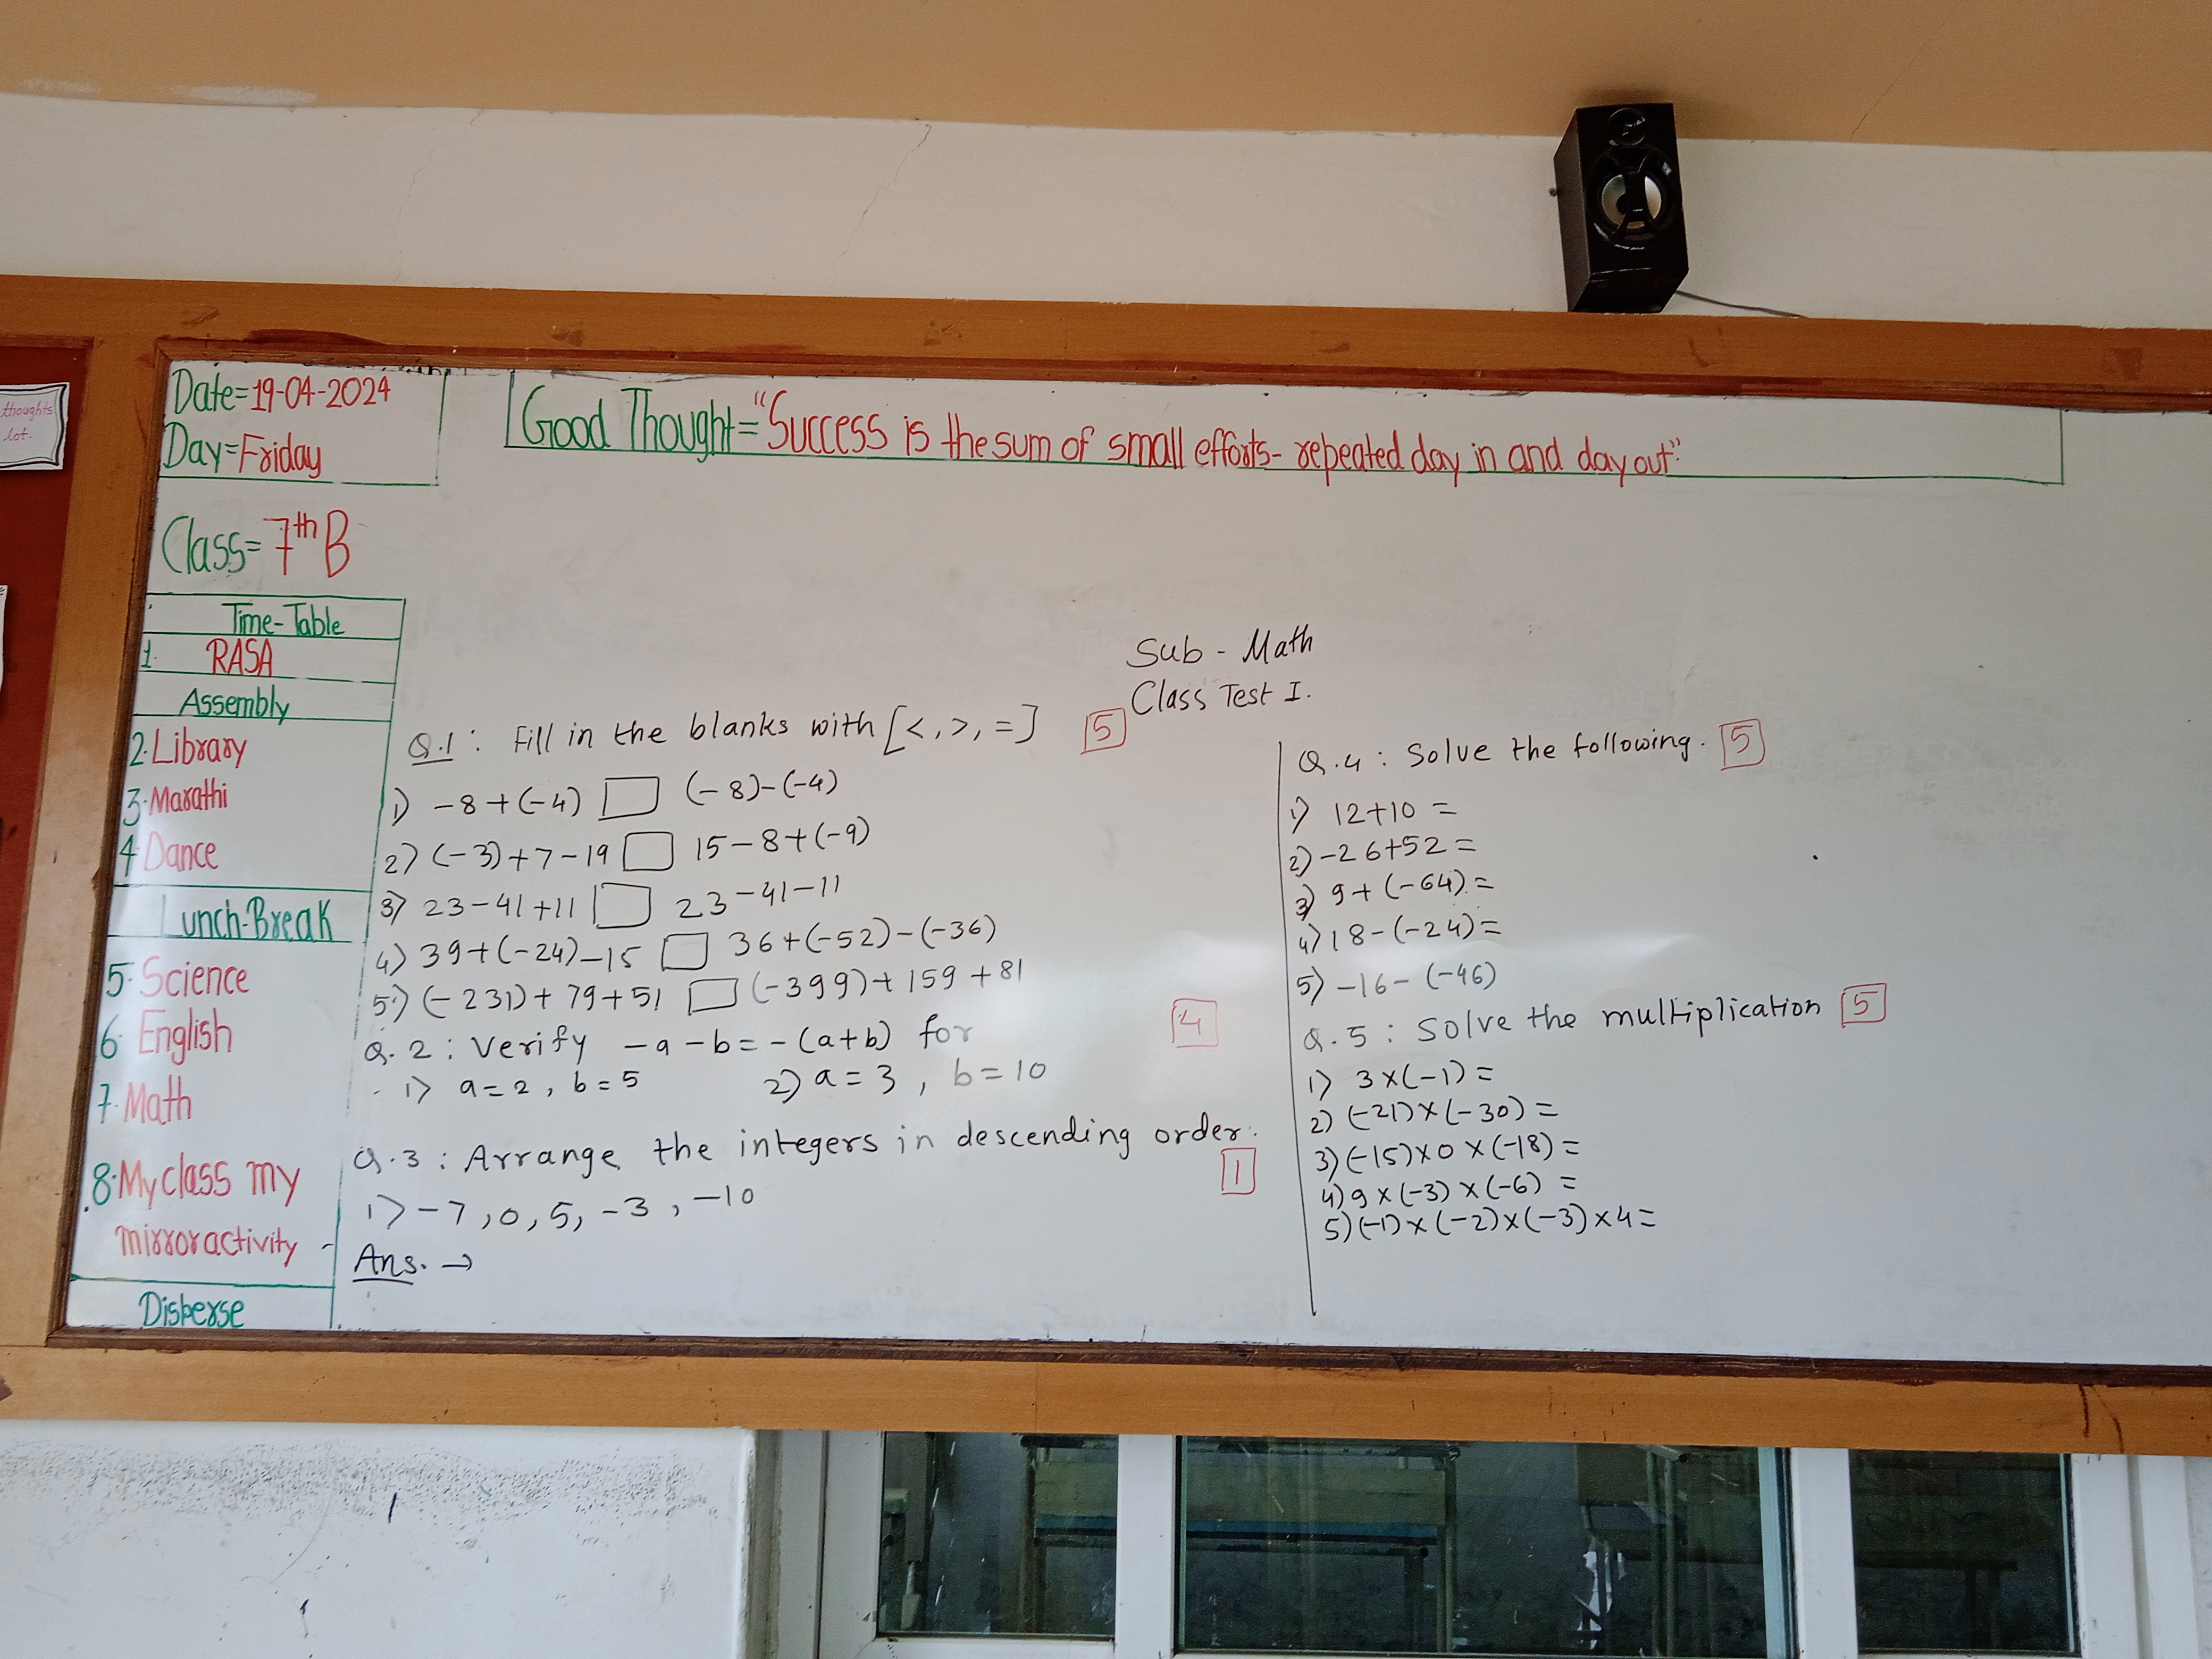 thoughts
lot.
Date=19-04-2024
Day=Friday
Good Thought="Success is the sum of small efforts- repeated day in and day out"
Class=7th B
Time-Table
1. RASA
Assembly
2.Library
3.Marathi
4.Dance
Lunch-Break
5.Science
6 English
7.Math
8.My class my
mirror activity
Disperse
Sub - Math
Class Test I.
Q.1: Fill in the blanks with [<,>,=] 5
1) -8+(-4) □ (-8)-(-4)
2) (-3)+7-19 □ 15-8+(-9)
3) 23-41+11 □ 23-41-11
4) 39+(-24)-15 □ 36+(-52)-(-36)
5) (-231)+79+51 □ (-399)+159+81
Q.2: Verify -a-b=-(a+b) for 4
1) a=2, b=5 2) a=3, b=10
Q.3: Arrange the integers in descending order.
1
1) -7, 0, 5, -3, -10
Ans. →
Q.4: Solve the following. 5
1) 12+10=
2) -26+52=
3) 9+(-64)=
4) 18-(-24)=
5) -16-(-46)
Q.5: Solve the multiplication 5
1) 3×(-1)=
2) (-21)×(-30)=
3) (-15)×0×(-18)=
4) 9×(-3)×(-6)=
5) (-1)×(-2)×(-3)×4=